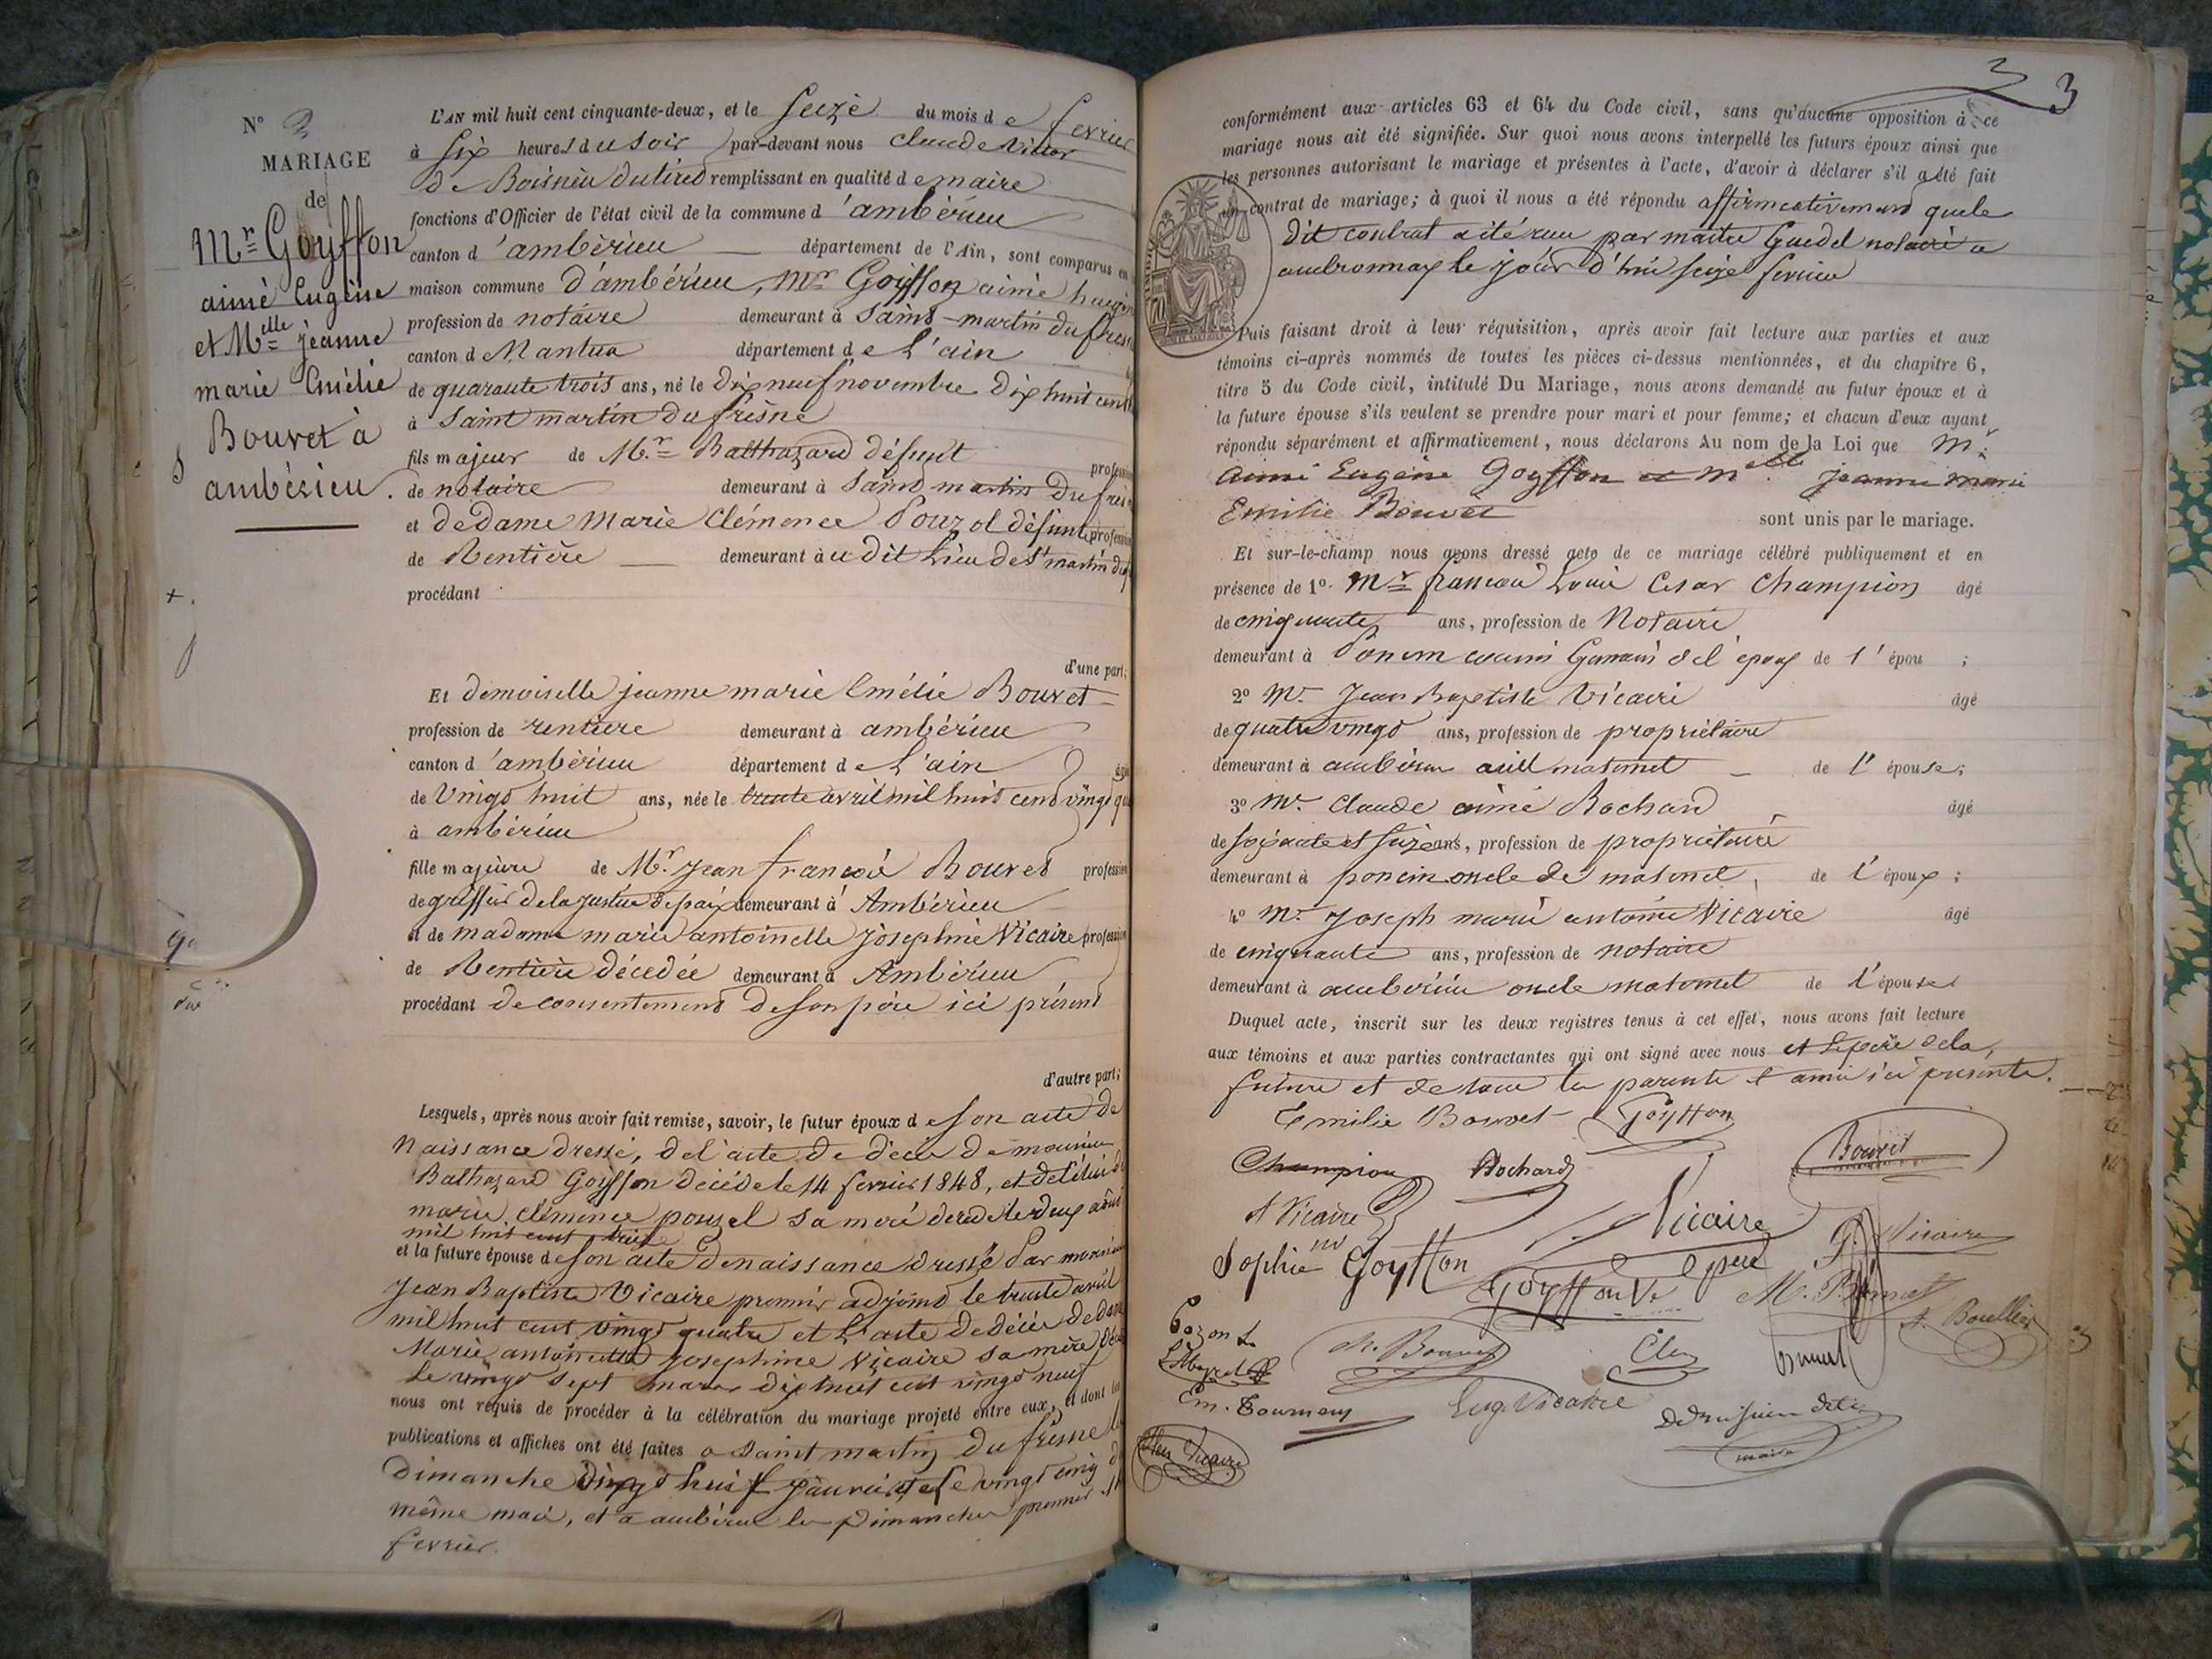 N° 3
MARIAGE
de
Mr Goyffon
aimé Eugène
et Melle jeanne
marie Emélie
Bouvet à
ambérieu.
L'AN mil huit cent cinquante-deux, et le seize du mois de fevrier
à six heures du soir par-devant nous claude victor
de Boisnieu dutiret remplissant en qualité de maire
fonctions d'Officier de l'état civil de la commune d'ambérieu
canton d'ambèrieu département de l'Ain, sont comparus en
maison commune d'ambérieu, Mr Goyffon aimé
profession de notaire demeurant à saint-martin du fresne
canton de Nantua département de L'ain
de quarante trois ans, né le dix neuf novembre dix huit cent
à saint martin du fresne
fils majeur de Mr Balthazard défunt profession
de notaire demeurant à saint martin du fresne
et de dame Marie Clémence Pouzol défunte profession
de Rentière demeurant au dit Lieu de st martin du
procédant
d'une part;
Et demoiselle jeanne marie Emélie Bouvet
profession de rentiere demeurant à ambérieu
canton d'ambérieu département de L'ain âgée
de vingt huit ans, née le trente avril mil huit cent vingt
à ambérieu
fille majeure de Mr jean françois Bouvet profession
de greffier de la justice de paix demeurant à Ambérieu
et de madame marie antoinette josephine Vicaire profession
de Rentière décedée demeurant à Ambérieu
procédant de consentement de son père ici présent
d'autre part;
Lesquels, après nous avoir fait remise, savoir, le futur époux de son acte de
Naissance dressé, de l'acte de décès de monsieur
Balthazard Goyffon décédé le 14 fevrier 1848, et de celui de
marie clémence pouzol sa mere décédée le deux août
mil huit cent treize
et la future épouse de son acte de naissance dressé Par monsieur
Jean Baptiste Vicaire premier adjoint le trente avril
mil huit cent vingt quatre et L'acte de décès de dame
Marie antoinette josephine Vicaire sa mère
Le vingt sept mars dix huit cent vingt neuf
nous ont requis de procéder à la célébration du mariage projeté entre eux, et dont les
publications et affiches ont été faites a saint martin du fresne
dimanche janvier et le vingt cinq
même mois, et a ambérieu les Dimanches premier
fevrier.
3 3
conformément aux articles 63 et 64 du Code civil, sans qu'aucune opposition à ce
mariage nous ait été signifiée. Sur quoi nous avons interpellé les futurs époux ainsi que
les personnes autorisant le mariage et présentes à l'acte, d'avoir à déclarer s'il a été fait
un contrat de mariage; à quoi il nous a été répondu affirmativement que le
dit contrat a été reçu par maitre Guedel notaire a
ambronnay le jour d'hui seize fevrier
Puis faisant droit à leur réquisition, après avoir fait lecture aux parties et aux
témoins ci-après nommés de toutes les pièces ci-dessus mentionnées, et du chapitre 6,
titre 5 du Code civil, intitulé Du Mariage, nous avons demandé au futur époux et à
la future épouse s'ils veulent se prendre pour mari et pour femme; et chacun d'eux ayant
répondu séparément et affirmativement, nous déclarons Au nom de la Loi que Mr
Aimé Eugène Goyffon et Melle Jeanne marie
Emilie Bouvet sont unis par le mariage.
Et sur-le-champ nous avons dressé acte de ce mariage célébré publiquement et en
présence de 1° Mr françois Louis Cesar Champion âgé
de cinquante ans, profession de Notaire
demeurant à Poncin cousin Germain de l'époux de l'épou ;
2° Mr Jean Baptiste Vicaire âgé
de quatre vingt ans, profession de propriétaire
demeurant à ambérieu aieul maternel de l'épouse;
3° Mr Claude aimé Rochard âgé
de soixante et seize ans, profession de propriétaire
demeurant à poncin oncle maternel de l'époux;
4° Mr Joseph marie antoine Vicaire âgé
de cinquante ans, profession de notaire
demeurant à ambérieu oncle maternel de l'épouse
Duquel acte, inscrit sur les deux registres tenus à cet effet, nous avons fait lecture
aux témoins et aux parties contractantes qui ont signé avec nous et le père de la
future et de tous les parents et amis ici présents.
Emilie Bouvet Goyffon
Champion Rochard Bouvet
A Vicaire Vicaire Vicaire
Sophie Goyffon
Goyffon Ve
M. Bouvet
Eug. Vicaire
maire